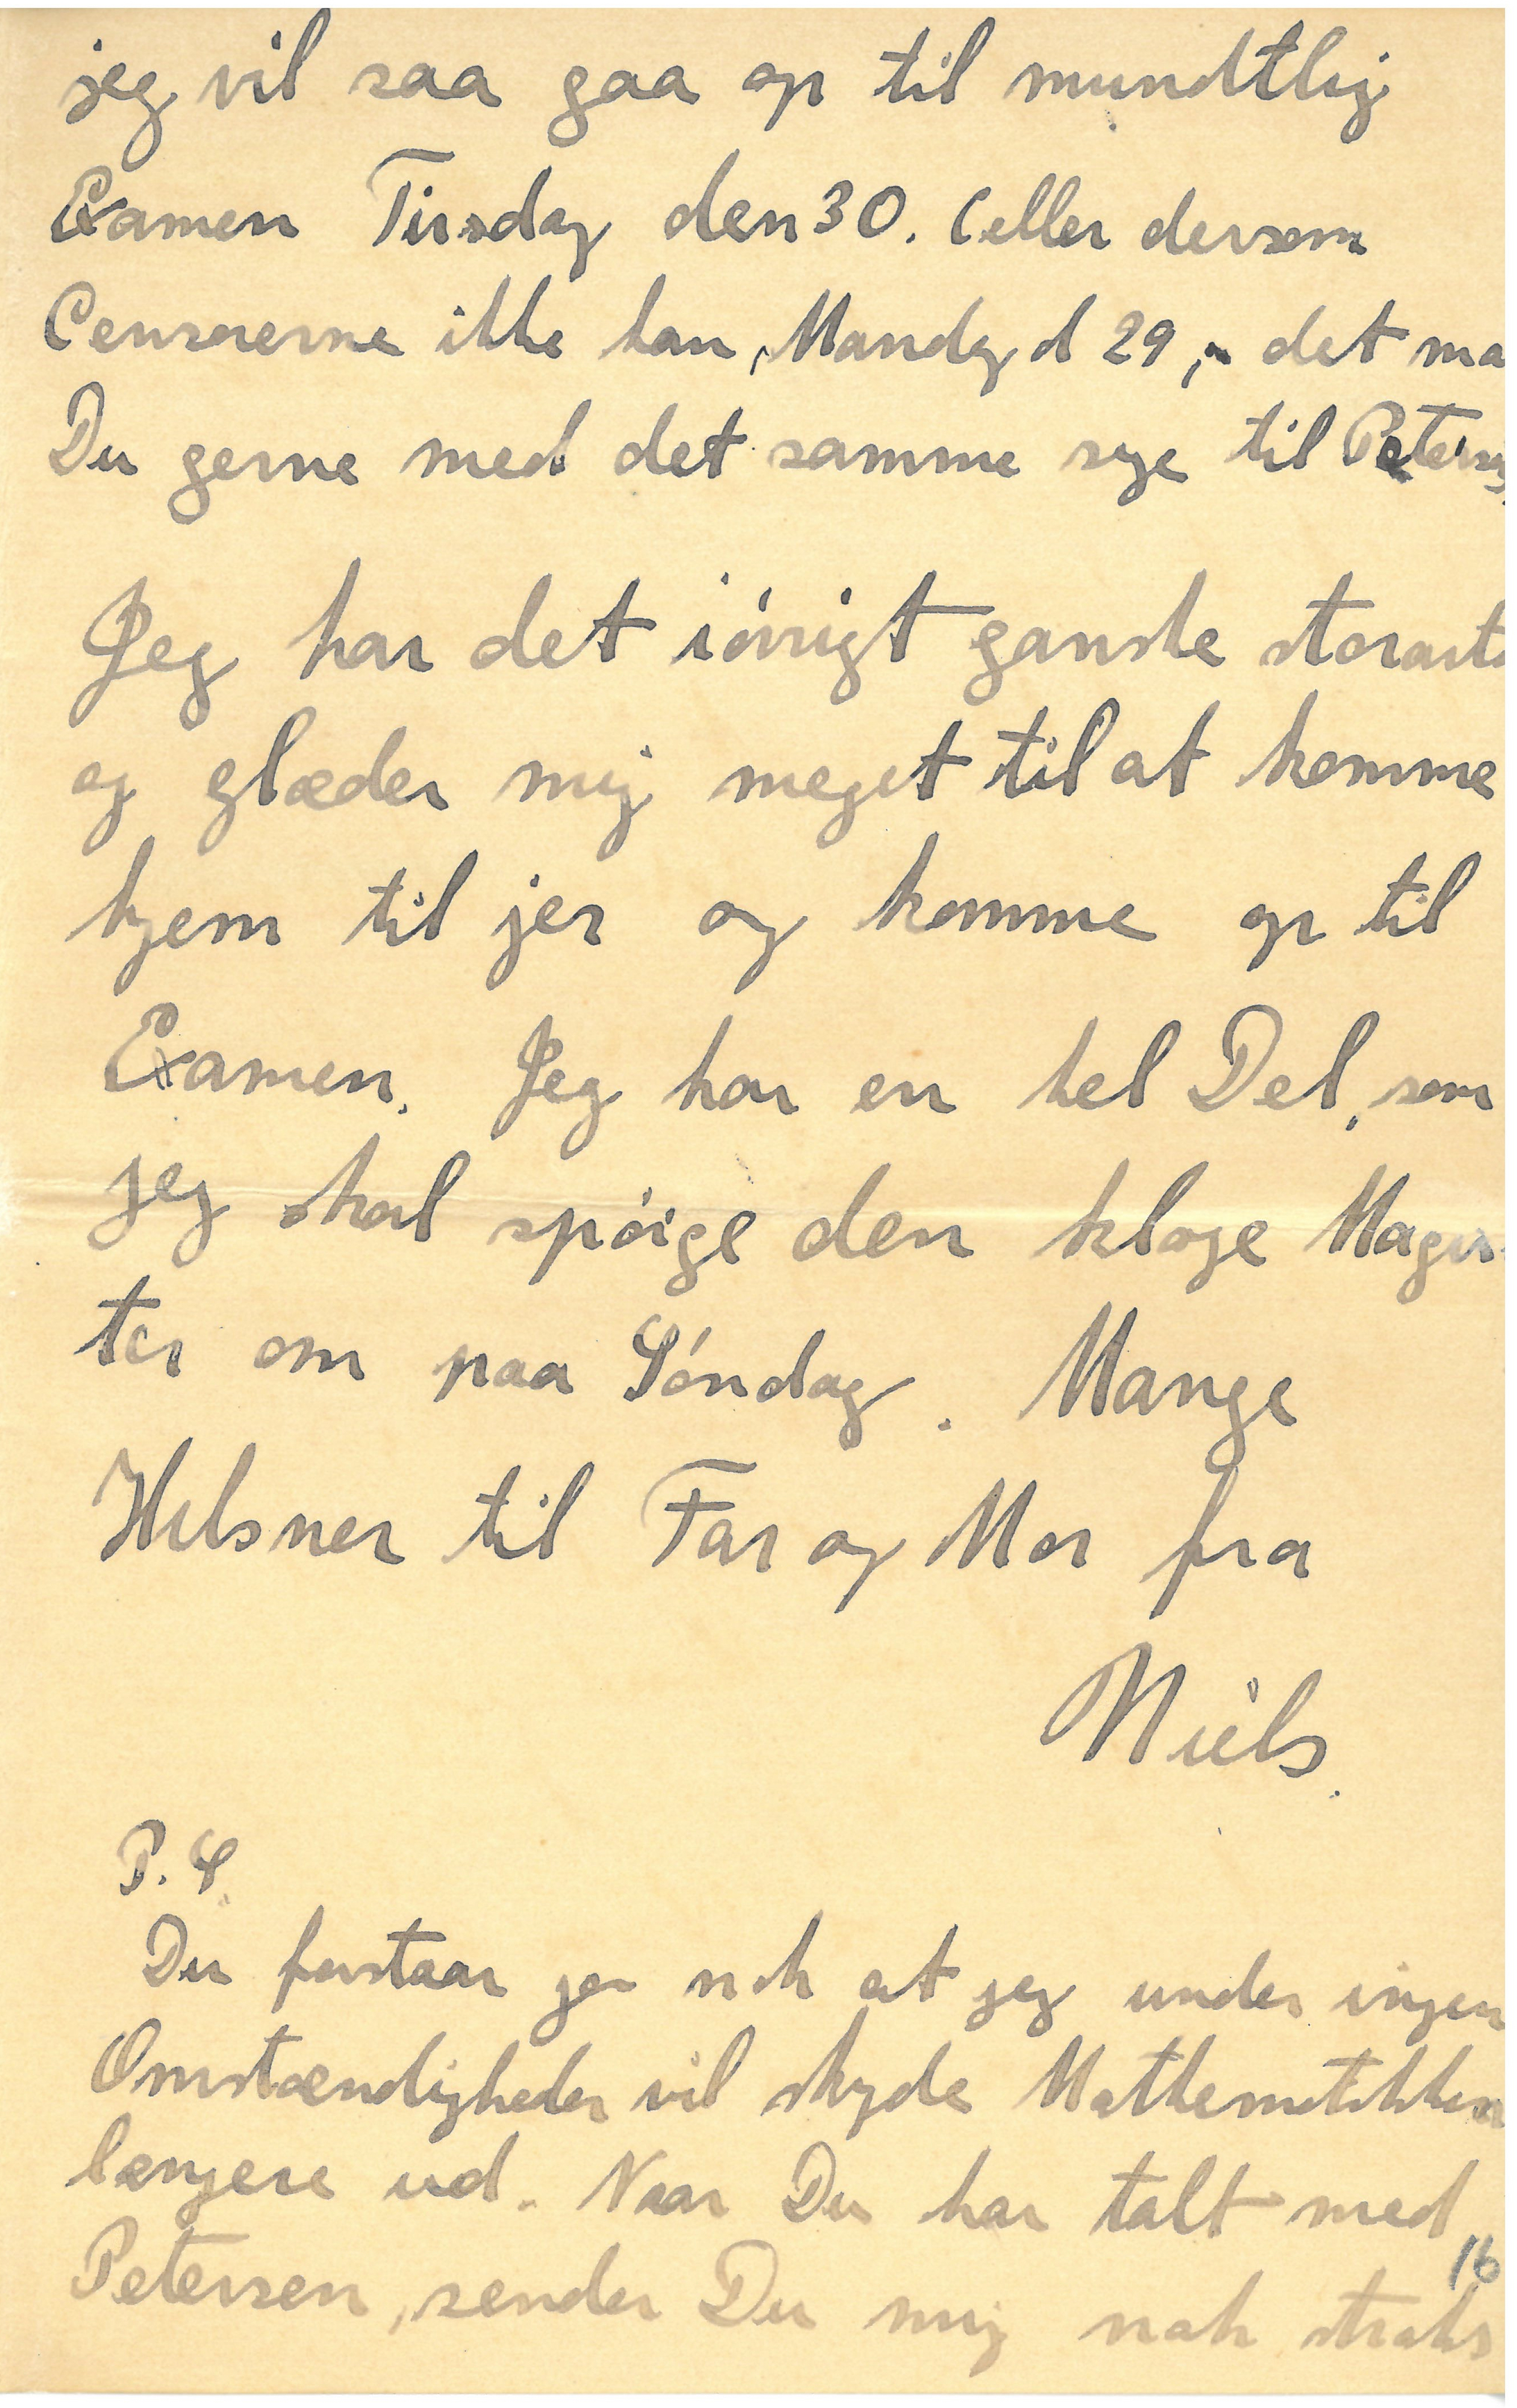 jeg vil saa gaa op til mundtlig
Examen Tirsdag den 30. (eller dersom
Censorerne ikke kan, Mandag d 29, det ma
Du gerne med det samme sige til Petersen,
Jeg har det iøvrigt ganske storarte
og glæder mig meget til at komme
hjem til jer og komme op til
Examen. Jeg har en hel Del, som
jeg skal spørge den kloge Magis-
ter om paa Søndag. Mange
Hilsner til Far og Mor fra
Niels.
P. S.
Du forstaar ja nok at jeg under ingen
Omstændigheder vil skyde Mathematikken
længere ud. Naar Du har talt med
16
Petersen, sender Du mig nok straks